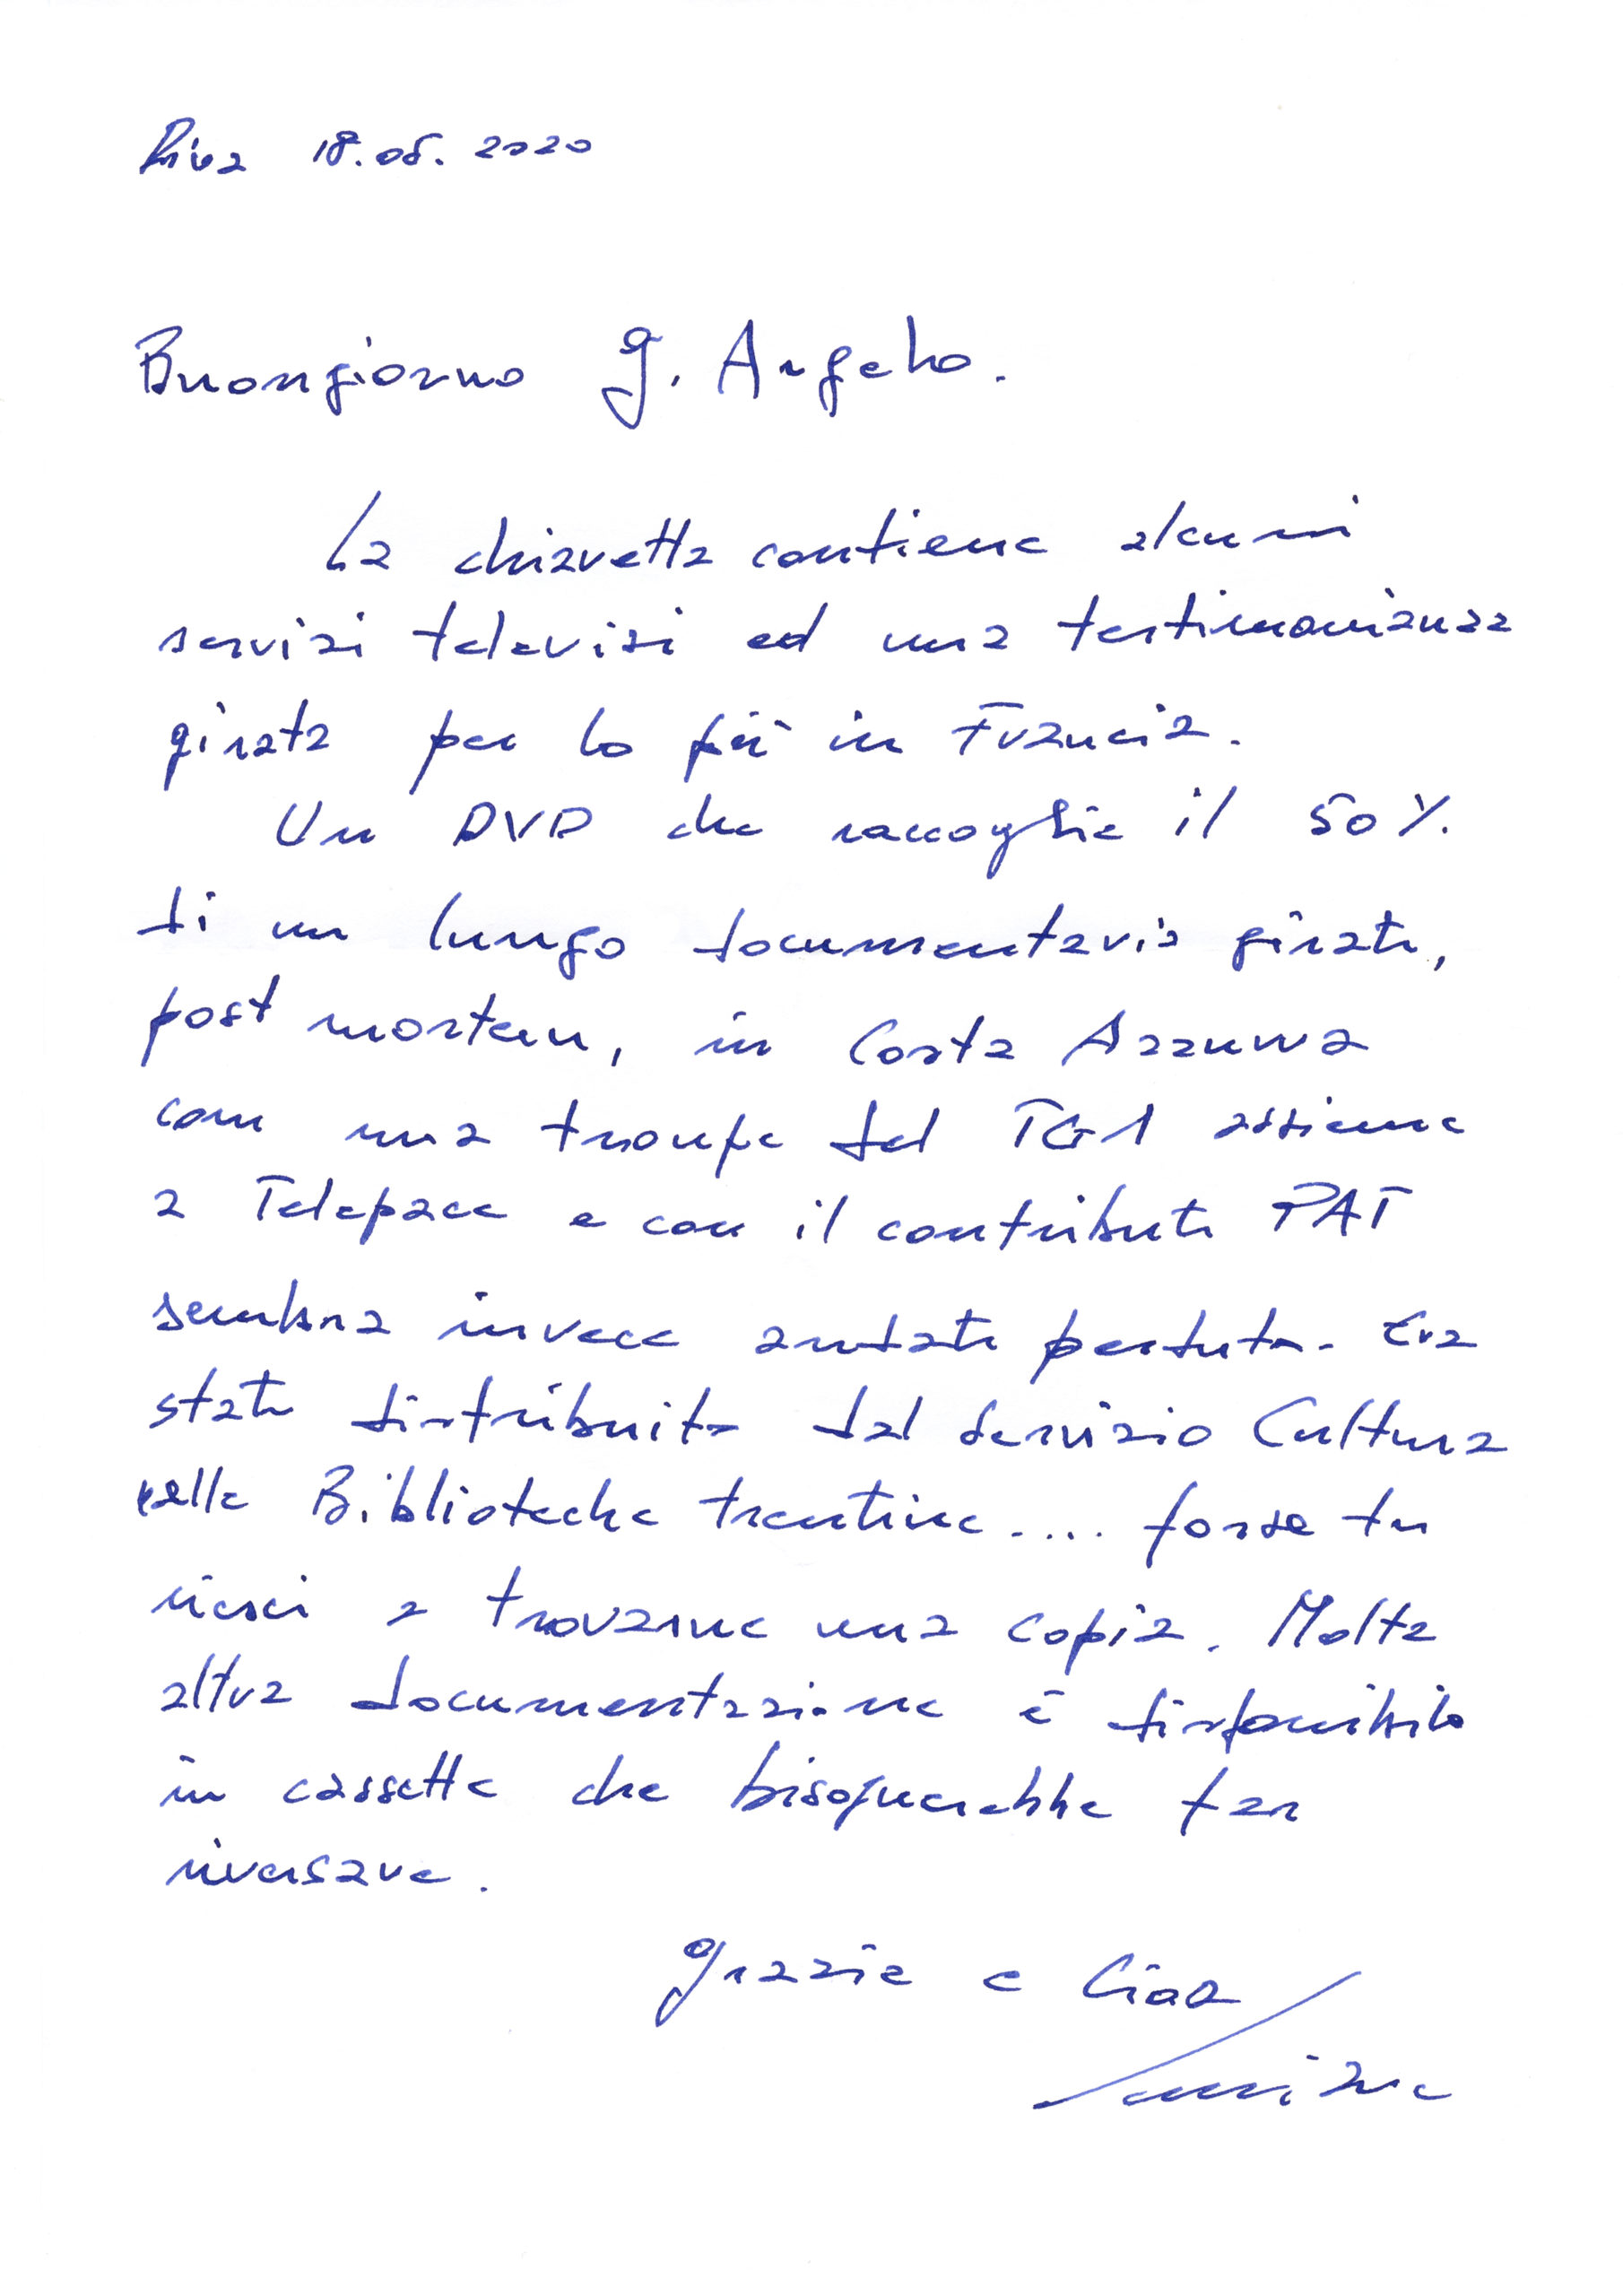 Riva 18.05.2020
Buongiorno G. Angelo.
La chiavetta contiene alcuni
servizi televisi ed una testimonianza
girata per lo più in Francia.
Un DVD che raccoglie il 50%
di un lungo documentario girato,
post mortem, in Costa Azzurra
con una troupe del TG1 assieme
a Telepace e con il contributo PAT
sembra invece andato perduto. Era
stato distribuito dal Servizio Cultura
nelle Biblioteche trentine.... forse tu
riesci a trovarne una copia. Molta
altra documentazione è disponibile
in cassette che bisognerebbe far
riversare.
Grazie e Ciao